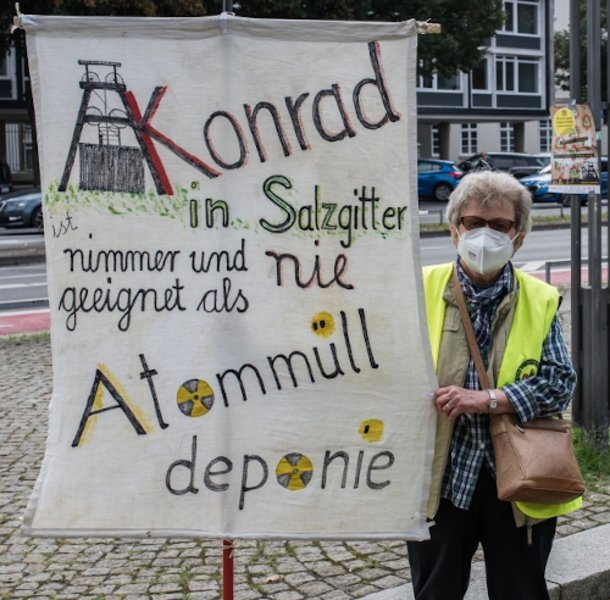 Konrad
in Salzgitter
ist
nimmer und nie
geeignet als
Atommüll
deponie